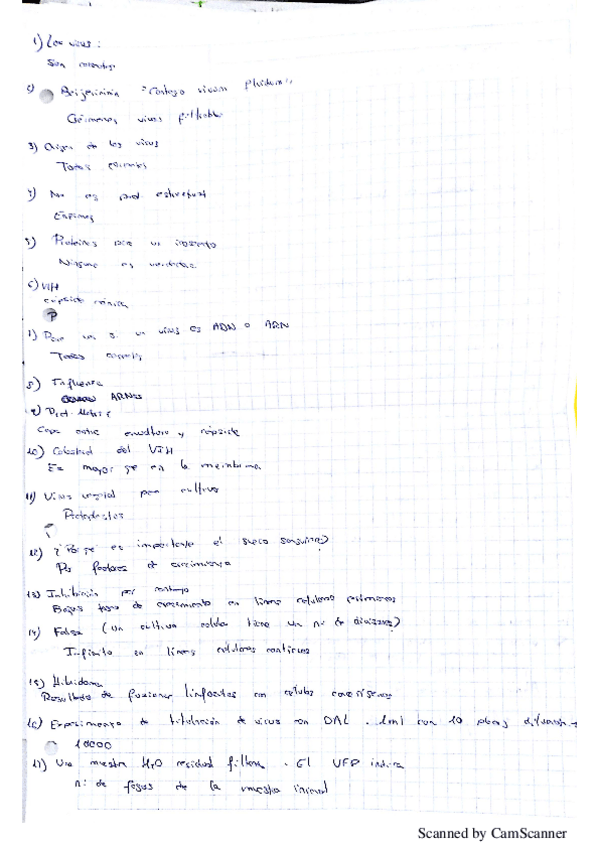 1) Los virus:
Son
2) Beijerinck "Contagio vivum fluidum"
Gérmenes vivos filtrable
3) Origen de los virus
Todas correctas
4) No es prot estructural
Enzimas
5) Proteínas para un
Ninguna es verdadera
6) VIH
cápside cónica
7) Para un virus es ADN o ARN
Todas correctas
8) Influenza
ARNss
9) Prot. Matriz
Capa entre envoltura y cápside
10) Colesterol del VIH
Es mayor que en la membrana
11) Virus vegetal para cultivo
Protoplastos
12) ¿Por qé es importante el suero sanguíneo?
Por factores de crecimiento
13) Inhibición por contacto
Bajas tasa de crecimiento en líneas celulares
14) Falsa (Un cultivo celular tiene un nº de divisiones)
Infinito en líneas celulares continuas
15) Hibridoma
Resultado de fusionar linfocitos con células cancerígenas
16) Experimento de titulación de virus con 1ml con 10 placas
10000
17) Una muestra H2O residual filtrada. El UFP indica
nº de fagos de la muestra inicial
Scanned by CamScanner